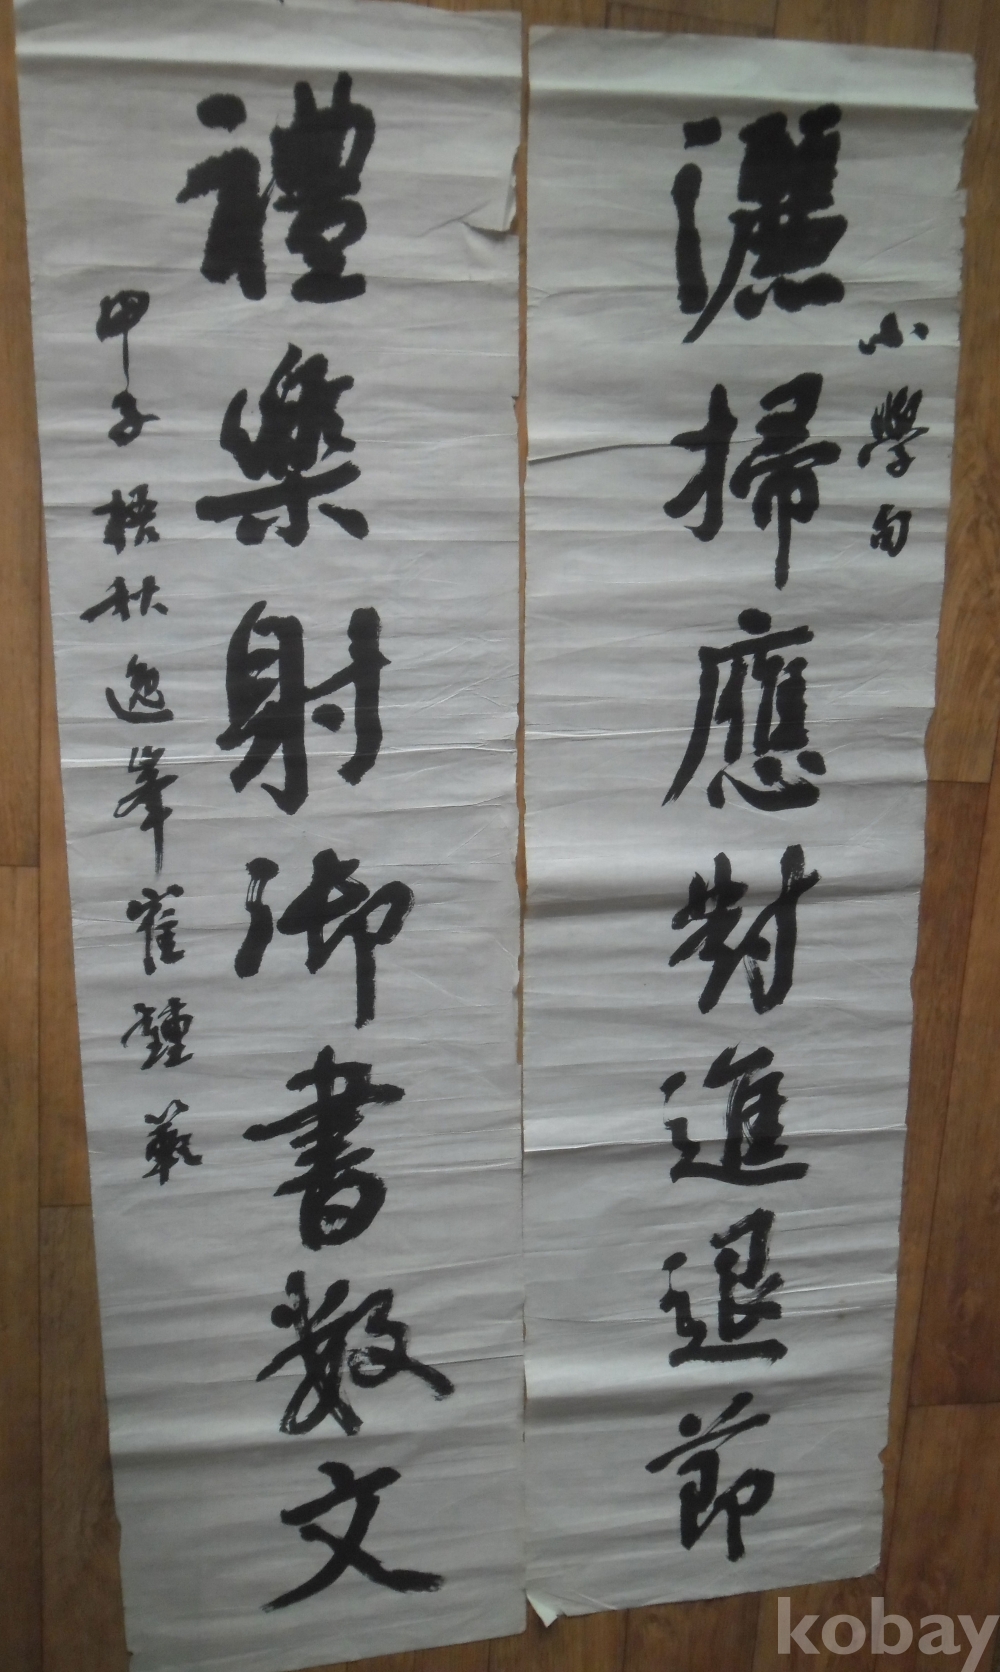 小學句
灑掃應對進退節
禮樂射御書數文
甲子梧秋逸峯崔鍾範
kobay